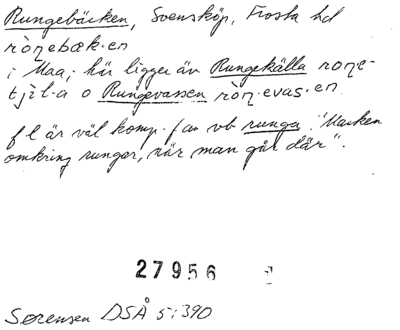 Rungebäcken, Svensköp, Frosta hd
ròŋebæk·en
i Maa; här ligger äv Rungekälla roŋe-
tjɪ̀l·a o Rungevassen ròŋ·evas·en.
fl är väl komp. f av vb runga. "Marken
omkring rungar, när man går där".
27956
Sørensen DSÅ 5:390